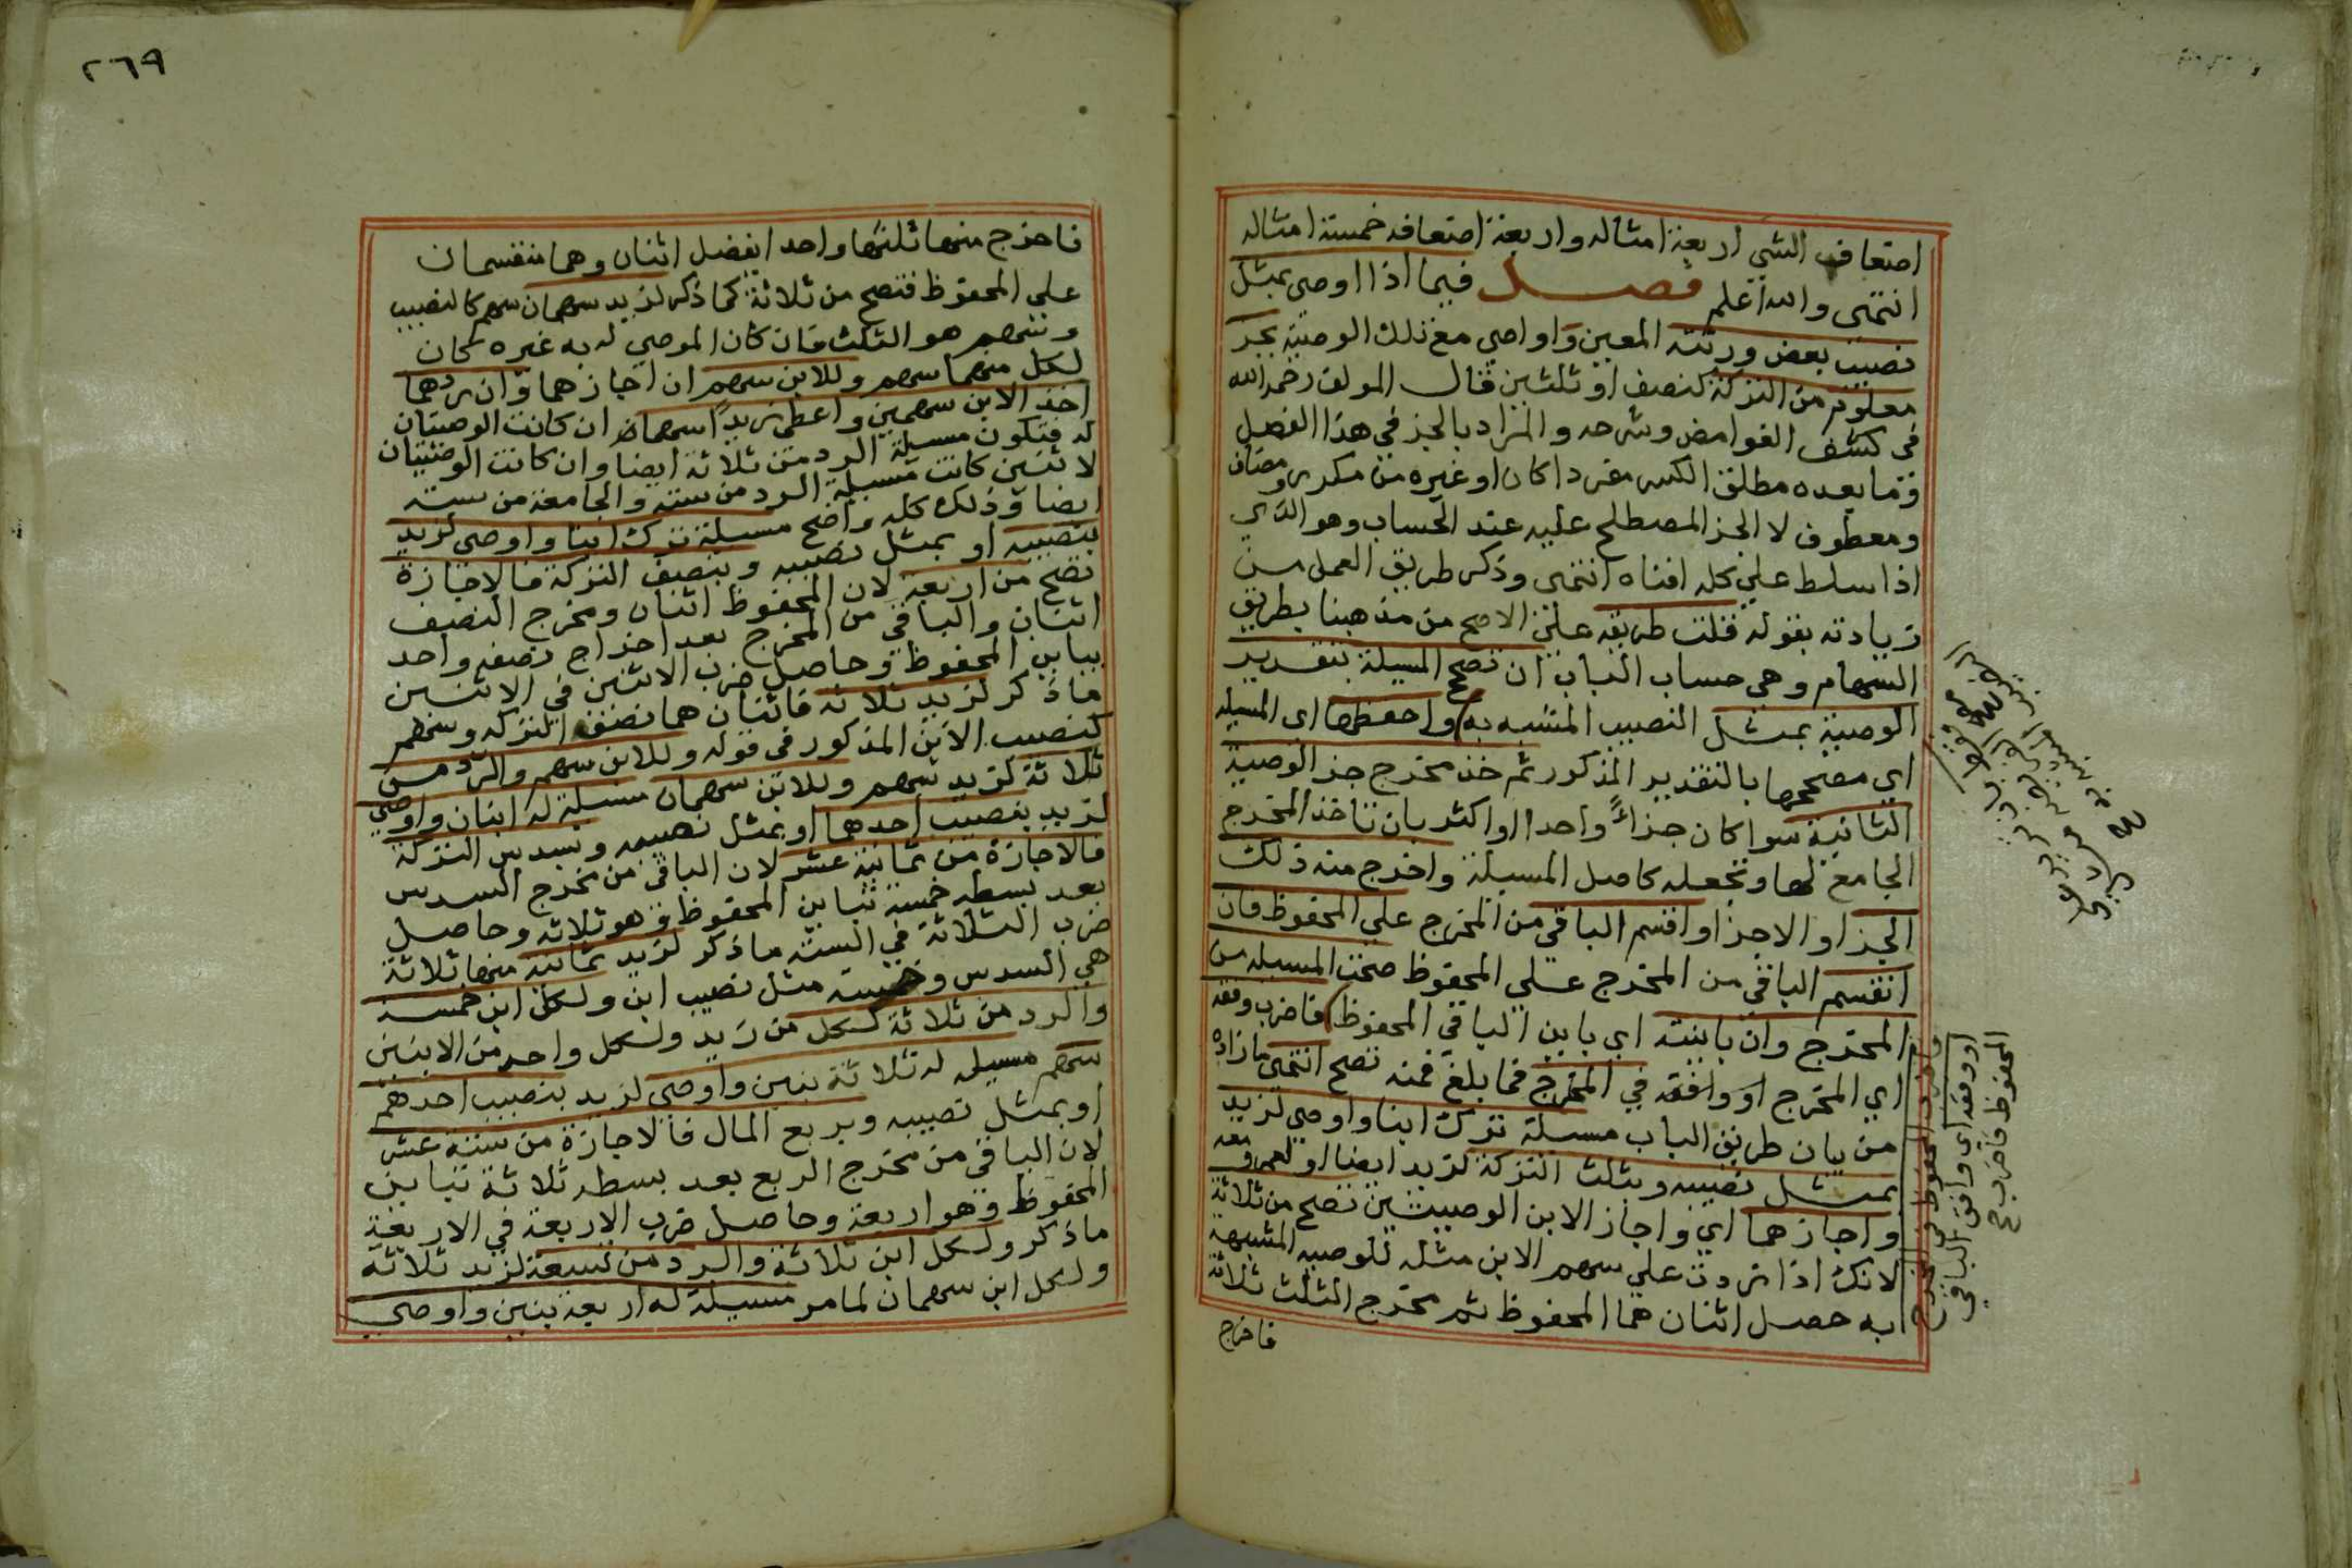 اضعاف الشي اربعة امثاله واربعة اضعافه خمسة امثاله
انتهى والله اعلم فصل فيما اذا اوصى بمثل
نصيب بعض ورثته المعين واوصى مع ذلك الوصية بجز
معلوم من التركة كنصف او ثلثين قال المولف رحمه الله
في كشف الغوامض وشرحه والمراد بالجز في هذا الفصل
وما بعده مطلق الكسر مفردا كان او غيره من مكرر ومضاف
ومعطوف لا الجز المصطلح عليه عند الحساب وهو الذي
اذا سلط على كله افناه انتهى وذكر طريق العمل من
زيادته بقوله قلت طريقه على الاصح من مذهبنا بطريق
السهام وهي حساب الباب ان تصحح المسيلة بتقدير
الوصية بمثل النصيب المشبه به واحفظها اى المسيله
اي مصححها بالتقدير المذكور ثم خذ مخرج جز الوصية
الثانية سوا كان جزاً واحدا او اكثر بان تاخذ المخرج
الجامع لها وتجعله كاصل المسيلة واخرج منه ذلك
الجز او الاجزا واقسم الباقي من المخرج على المحفوظ فان
انقسم الباقي من المخرج على المحفوظ صحت المسيله من
المخرج وان باينته اي باين الباقي المحفوظ فاضرب وفقه
اي المخرج او وافقه في المخرج فما بلغ فمنه تصح انتهى ما زاده
من بيان طريق الباب مسيلة ترك ابنا واوصى لزيد
بمثل نصيبه وبثلث التركة لزيد ايضا او لعمرو معه
واجازهما اي واجاز الابن الوصيتين تصح من ثلاثة
لانك اذا زدت على سهم الابن مثله للوصيه المشبهة
به حصل اثنان هما المحفوظ ثم مخرج الثلث ثلاثة
فاخرج
فاضرب المحفوظ في المخرج
او وفقه اي وافق الباقي
المحفوظ فاضرب
٢٦٩
فاخرج منها ثلثها واحدا يفضل اثنان وهما منقسمان
على المحفوظ فتصح من ثلاثة كما ذكر لزيد سهمان سهم كالنصيب
وسهم هو الثلث فان كان الموصي له به غيره كان
لكل منهما سهم وللابن سهم ان اجازهما وان ردهما
اخذ الابن سهمين واعطى زيداً سهما ان كانت الوصيتان
له فتكون مسيلة الرد من ثلاثة ايضا وان كانت الوصيتان
لاثنين كانت مسيلة الرد من سته والجامعة من سته
ايضا وذلك كله واضح مسيلة ترك ابنا واوصى لزيد
بنصيبه او بمثل نصيبه وبنصف التركة فالاجازة
تصح من اربعة لان المحفوظ اثنان ومخرج النصف
اثنان والباقي من المخرج بعد اخراج نصفه واحد
يباين المحفوظ وحاصل ضرب الاثنين في الاثنين
ما ذكر لزيد ثلاثة فاثنان هما نصف التركه وسهم
كنصيب الابن المذكور في قوله وللابن سهم والرد من
ثلاثة لزيد سهم وللابن سهمان مسيلة له ابنان واوصى
لزيد بنصيب احدهما او بمثل نصيبه وبسدس التركة
فالاجازة من ثمانية عشر لان الباقي من مخرج السدس
بعد بسطه خمسه تباين المحفوظ وهو ثلاثه وحاصل
ضرب الثلاثة في الستة ما ذكر لزيد ثمانيه منها ثلاثة
هي السدس وخمسة مثل نصيب ابن ولكل ابن خمسة
والرد من ثلاثة لكل من زيد ولكل واحد من الابنين
سهم مسيله له ثلاثة بنين واوصى لزيد بنصيب احدهم
او بمثل نصيبه وبربع المال فالاجازة من ستة عشر
لان الباقي من مخرج الربع بعد بسطه ثلاثة تباين
المحفوظ وهو اربعة وحاصل ضرب الاربعة في الاربعة
ما ذكر ولكل ابن ثلاثة والرد من تسعة لزيد ثلاثة
ولكل ابن سهمان لما مر مسيلة له اربعة بنين واوصى